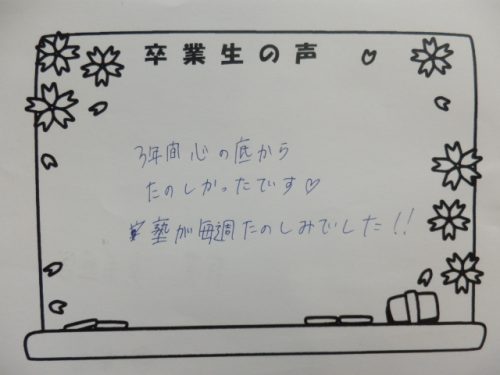 卒業生の声
3年間心の底から
たのしかったです♡
塾が毎週たのしみでした!!